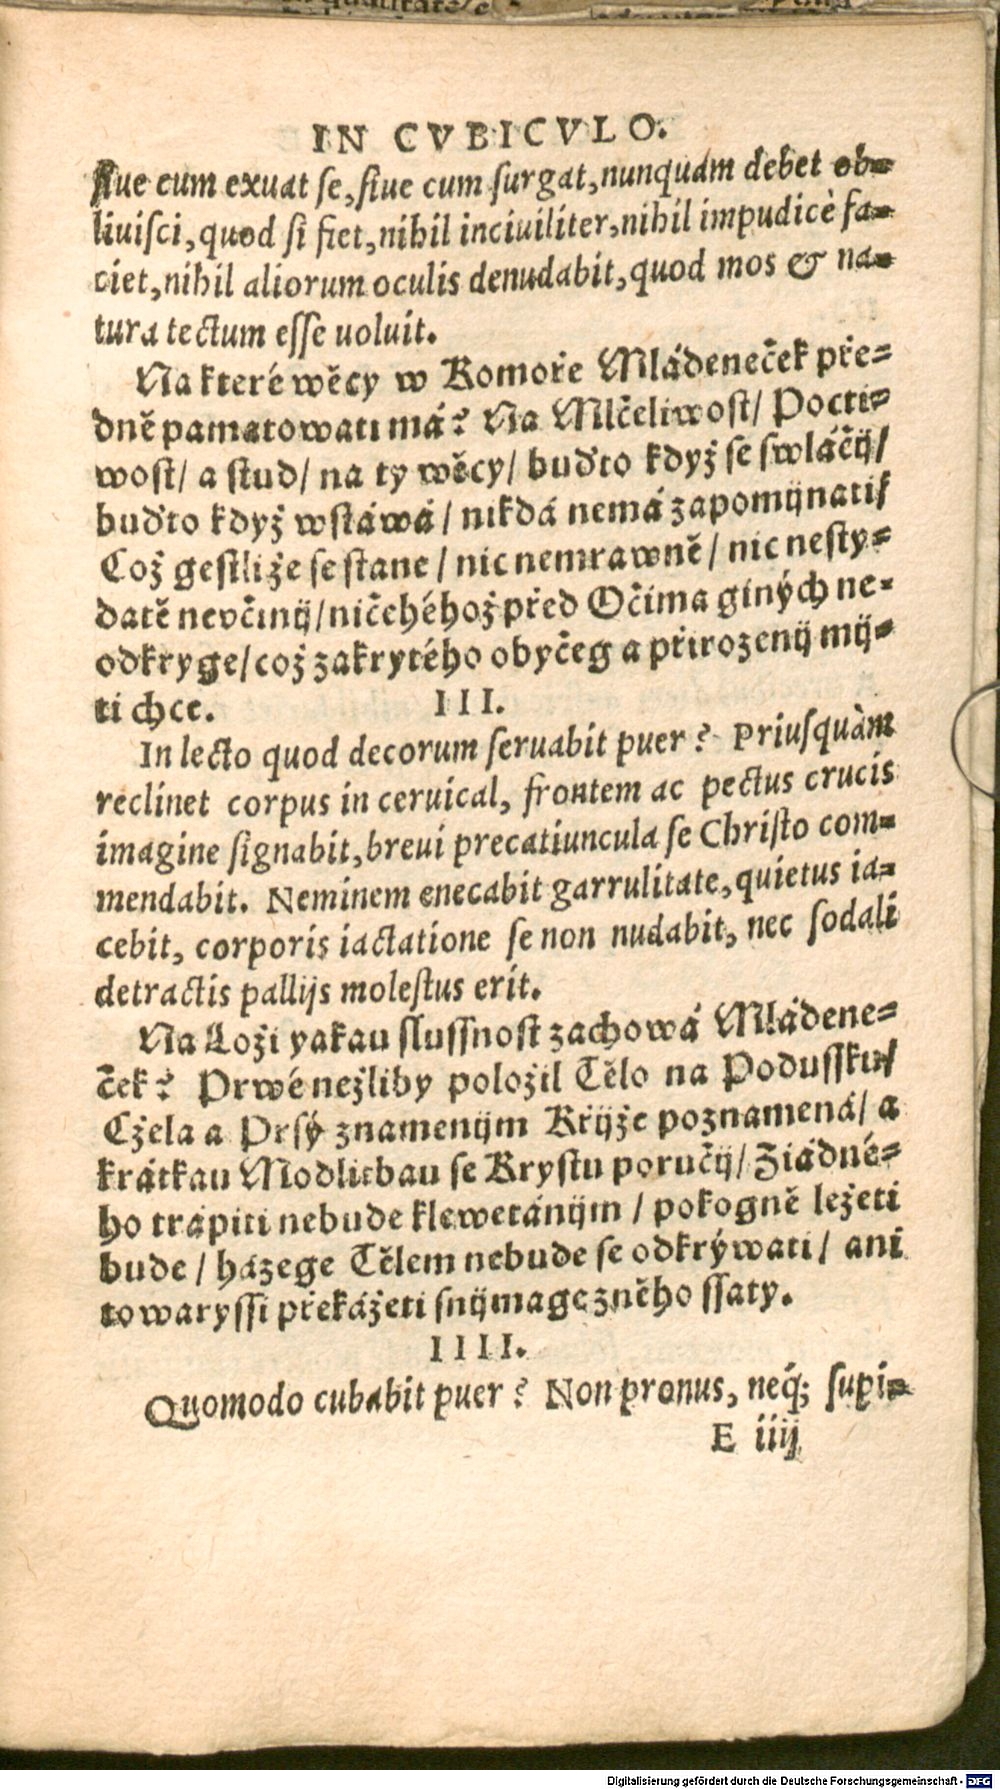 IN CVBICVLO.
ſiue eum exuat ſe, ſiue cum ſurgat, nunquam debet ob=
liuiſci, quod ſi fiet, nihil inciuiliter, nihil impudicè fa=
ciet, nihil aliorum oculis denudabit, quod mos & na=
tura tectum eſſe uoluit.
Na které wěcy w Komoře Mládeneček pře=
dně pamatowati má? Na Mlčeliwoſt/ Pocti=
woſt/ a ſtud/ na ty wěcy/ buďto když ſe ſwláčij/
buďto když wſtáwá/ nikdá nemá zapomijnati/
Což geſtliže ſe ſtane/ nic nemrawně/ nic neſty=
datě nevčinij/ ničehéhož před Očima giných ne=
odkryge/ což zakrytého obyčeg a přirozenij mij=
ti chce.
III.
In lecto quod decorum ſeruabit puer? Priuſquàm
reclinet corpus in ceruical, frontem ac pectus crucis
imagine ſignabit, breui precatiuncula ſe Chriſto com=
mendabit. Neminem enecabit garrulitate, quietus ia=
cebit, corporis iactatione ſe non nudabit, nec ſodali
detractis pallijs moleſtus erit.
Na Loži yakau ſluſſnoſt zachowá Mládene=
ček? Prwé nežliby položil Tělo na Poduſſku/
Cžela a Prſý znamenijm Křijže poznamená/ a
krátkau Modlitbau ſe Kryſtu poručij/ Žiádné=
ho trápiti nebude klewetánijm / pokogně ležeti
bude / házege Tělem nebude ſe odkrýwati/ ani
towaryſſi překážeti ſnijmage zněho ſſaty.
IIII.
Quomodo cubabit puer? Non pronus, neq́; ſupi=
E iiij
Digitalisierung gefördert durch die Deutsche Forschungsgemeinschaft - DFG